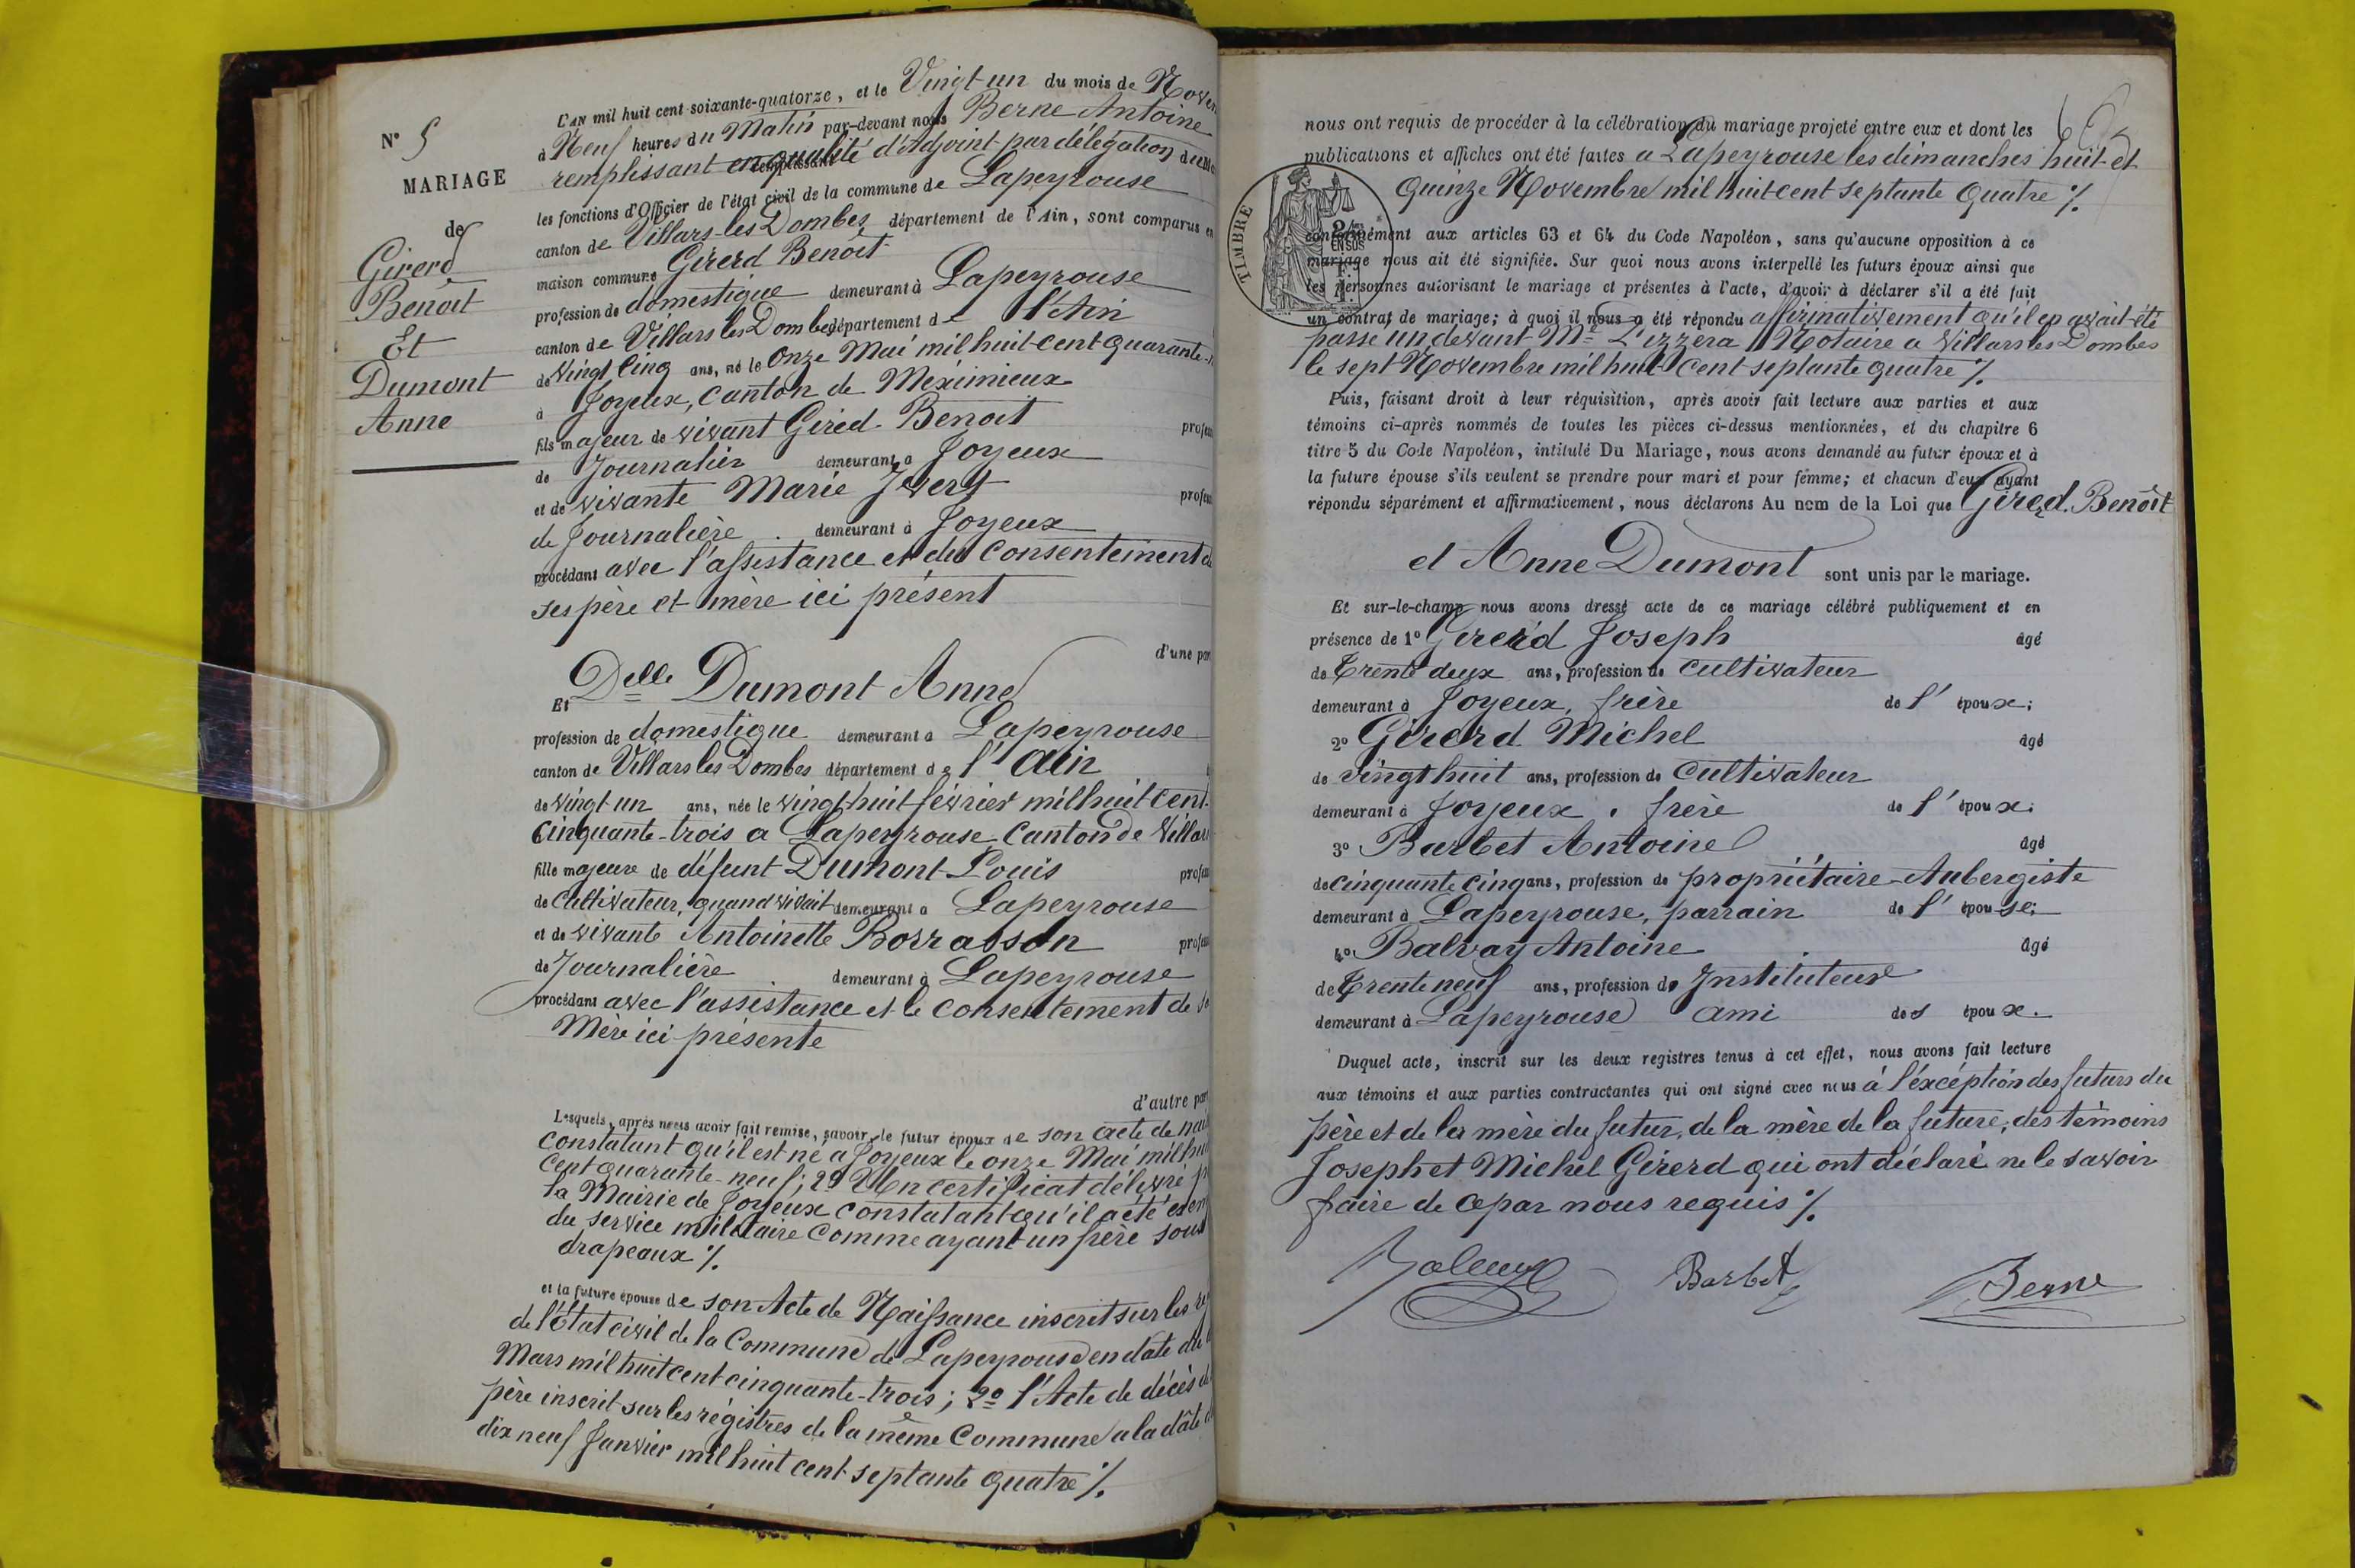 N° 5
MARIAGE
de
Girerd
Benoit
Et
Dumont
Anne
L'AN mil huit cent soixante-quatorze, et le Vingt-un du mois de Novem
à Neuf heures du Matin par-devant nous Berne Antoine
remplissant en qualité d'Adjoint par délégation du Ma
remplissant
les fonctions d'Officier de l'état civil de la commune de Lapeyrouse
canton de Villars-les Dombes, département de l'Ain, sont comparus en
maison commune Girerd Benoît
profession de domestique demeurant à Lapeyrouse
canton de Villars les Dombes département de l'Ain
de Vingt Cinq ans, né le Onze Mai mil huit-cent quarante-n
à Joyeux, canton de Meximieux
fils majeur de vivant Gired Benoit profess
de Journalier demeurant à Joyeux
et de vivante Marie profess
de Journalière demeurant à Joyeux
procédant avec l'assistance et du consentement de
ses père et mère ici présent
d'une part
Et Delle Dumont Anne
profession de domestique demeurant à Lapeyrouse
canton de Villars les Dombes département de l'Ain
de vingt-un ans, née le vingt-huit février mil huit cent
cinquante-trois a Lapeyrouse Canton de Villars
fille majeure de défunt Dumont Louis profess
de Cultivateur, quand vivait demeurant à Lapeyrouse
et de vivante Antoinette Borrasson profess
de Journalière demeurant à Lapeyrouse
procédant avec l'assistance et le consentement de sa
Mère ici présente
d'autre part
Lesquels, après nous avoir fait remise, savoir, le futur époux de son acte de nais
constatant qu'il est né a Joyeux le onze Mai mil huit
cent quarante-neuf; 2° Un certificat délivré p
la Mairie de Joyeux constatant qu'il a été exem
du service militaire comme ayant un frère sous
drapeaux %.
et la future épouse de son Acte de Naissance inscrit sur les re
de l'État civil de la Commune de Lapeyrouse en date du
Mars mil huit cent cinquante-trois; 2° l'Acte de décès de
père inscrit sur les régistres de la même Commune a la dâte d
dix neuf Janvier mil huit cent septante quatre %.
nous ont requis de procéder à la célébration du mariage projeté entre eux et dont les
publications et affiches ont été faites a Lapeyrouse les dimanches huit et
Quinze Novembre mil huit cent septante Quatre %.
TIMBRE
2/10es
EN SUS
conformément aux articles 63 et 64 du Code Napoléon, sans qu'aucune opposition à ce
mariage nous ait été signifiée. Sur quoi nous avons interpellé les futurs époux ainsi que
les personnes autorisant le mariage et présentes à l'acte, d'avoir à déclarer s'il a été fait
un contrat de mariage; à quoi il nous a été répondu affirmativement qu'il en avait été
passé un devant Me Lizzera Notaire a Villars les Dombes
le sept Novembre mil huit Cent septante quatre %.
Puis, faisant droit à leur réquisition, après avoir fait lecture aux parties et aux
témoins ci-après nommés de toutes les pièces ci-dessus mentionnées, et du chapitre 6
titre 5 du Code Napoléon, intitulé Du Mariage, nous avons demandé au futur époux et à
la future épouse s'ils veulent se prendre pour mari et pour femme; et chacun d'eux ayant
répondu séparément et affirmativement, nous déclarons Au nom de la Loi que Girerd Benoît
et Anne Dumont sont unis par le mariage.
Et sur-le-champ nous avons dressé acte de ce mariage célébré publiquement et en
présence de 1° Girerd Joseph âgé
de Trente deux ans, profession de Cultivateur
demeurant à Joyeux, frère de l' époux;
2° Girerd Michel âgé
de vingt huit ans, profession de Cultivateur
demeurant à Joyeux, frère de l' époux.
3° Barbet Antoine âgé
de cinquante cinq ans, profession de propriétaire-Aubergiste
demeurant à Lapeyrouse, parrain de l' épouse;
4° Balvay Antoine âgé
de Trente neuf ans, profession de Instituteur
demeurant à Lapeyrouse ami des époux.
Duquel acte, inscrit sur les deux registres tenus à cet effet, nous avons fait lecture
aux témoins et aux parties contractantes qui ont signé avec nous à l'éxcéption des futurs du
père et de la mère du futur, de la mère de la future, des témoins
Joseph et Michel Girerd qui ont déclaré ne le savoir
faire de ce par nous requis %.
Barbet Berne